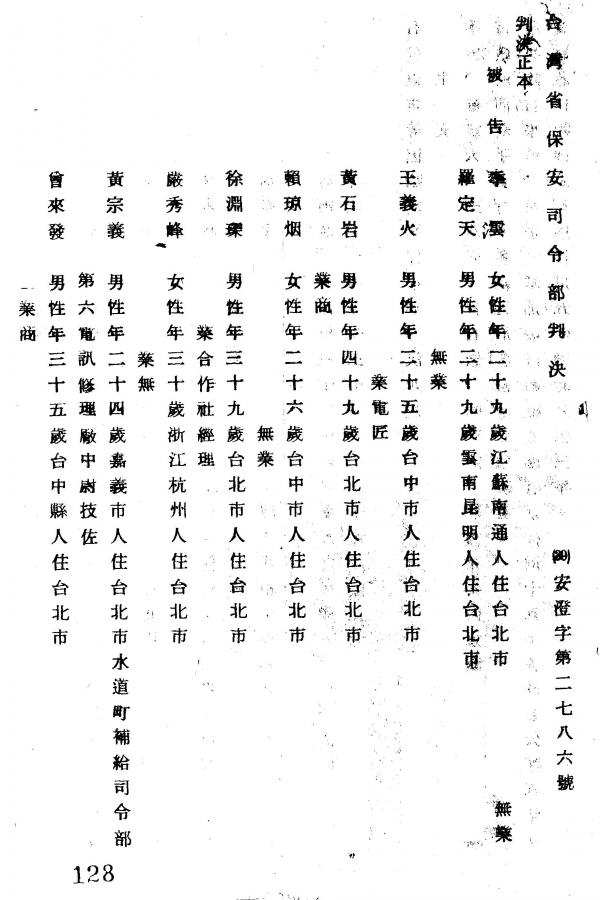 台灣省保安司令部判決
(39)安澄字第二七八六號
判決正本
被告 李雲 女性年二十九歲江蘇南通人住台北市 無業
羅定天 男性年二十九歲雲南昆明人住台北市
無業
王義火 男性年二十五歲台中市人住台北市
業電匠
黃石岩 男性年四十九歲台北市人住台北市
業商
賴瓊烟 女性年二十六歲台中市人住台北市
無業
徐淵琛 男性年三十九歲台北市人住台北市
業合作社經理
嚴秀峰 女性年三十歲浙江杭州人住台北市
業無
黃宗義 男性年二十四歲嘉義市人住台北市水道町補給司令部
第六電訊修理廠中尉技佐
曾來發 男性年三十五歲台中縣人住台北市
業商
128